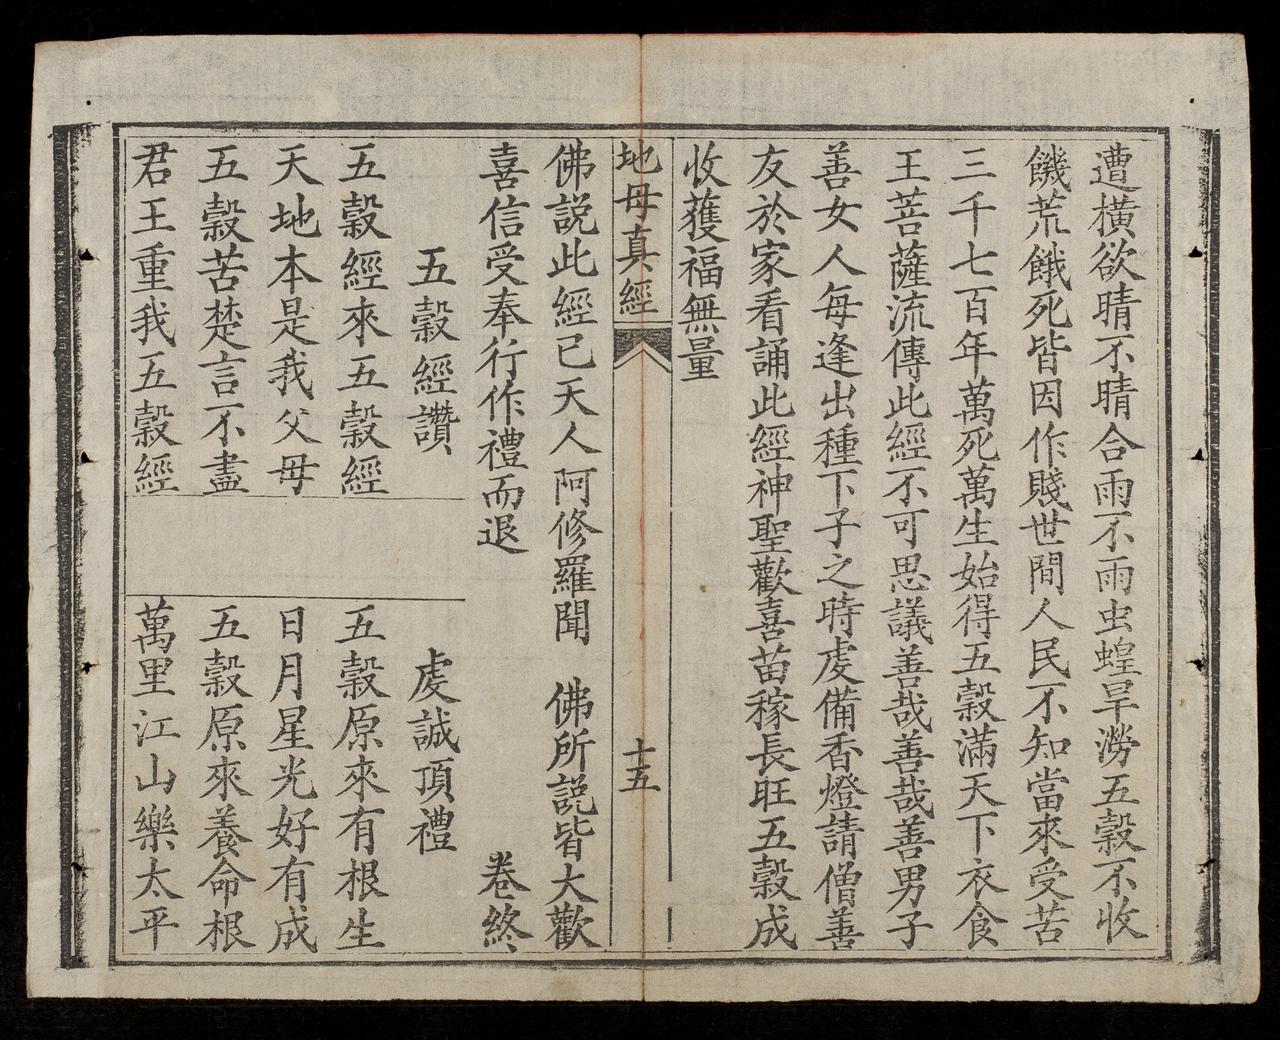 遭橫欲晴不晴合雨不雨虫蝗旱澇五穀不收
饑荒餓死皆因作賤世間人民不知當來受苦
三千七百年萬死萬生始得五穀滿天下衣食
王菩薩流傳此經不可思議善哉善哉善男子
善女人每逢出種下子之時虔備香燈請僧善
友於家看誦此經神聖歡喜苗稼長旺五穀成
收獲福無量
地母真經
十五
佛説此經已天人阿修羅聞 佛所説皆大歡
喜信受奉行作禮而退 卷終
五穀經讚 虔誠頂禮
五穀經來五穀經 五穀原來有根生
天地本是我父母 日月星光好有成
五穀苦楚言不盡 五穀原來養命根
君王重我五穀經 萬里江山樂太平